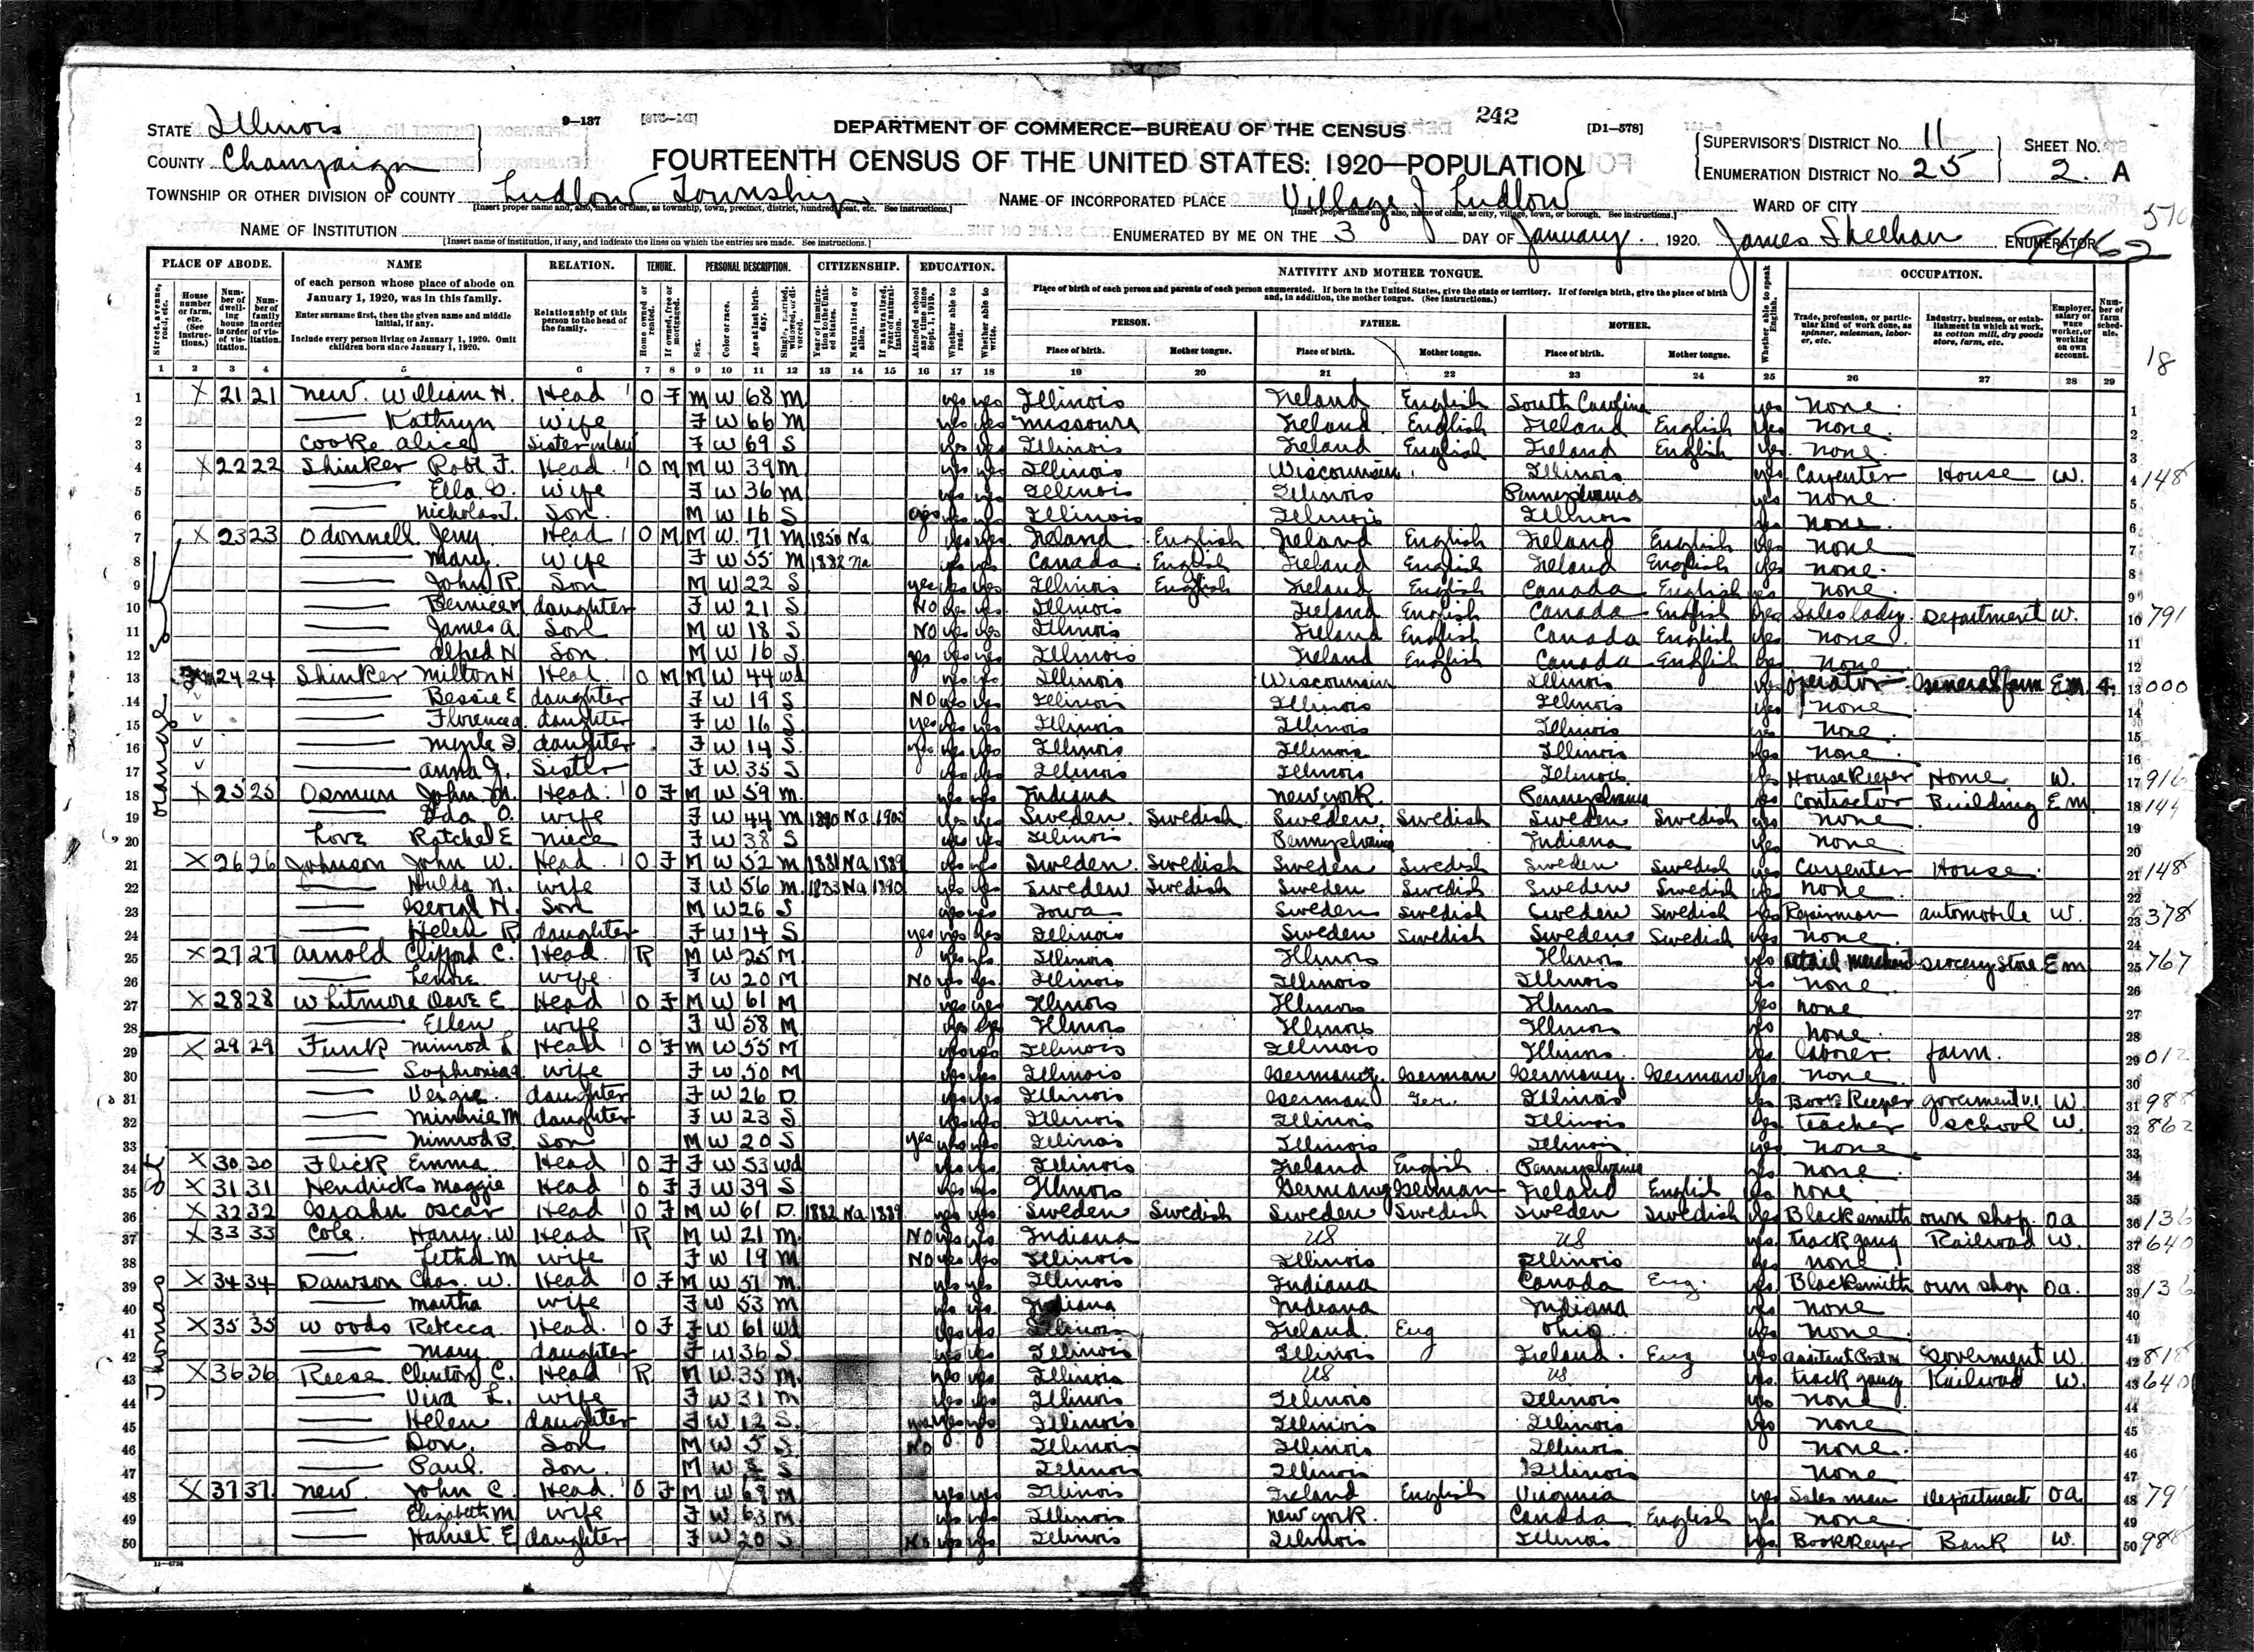 242
9—137
[D1—578]
STATE Illinois
COUNTY Champaign
TOWNSHIP OR OTHER DIVISION OF COUNTY Ludlow Township
[Insert proper name and, also, name of class, as township, town, precinct, district, hundred, beat, etc. See instructions.]
DEPARTMENT OF COMMERCE—BUREAU OF THE CENSUS
FOURTEENTH CENSUS OF THE UNITED STATES: 1920—POPULATION
SUPERVISOR'S DISTRICT No. 11
ENUMERATION DISTRICT No. 25
SHEET No. 2 A
NAME OF INCORPORATED PLACE Village of Ludlow
[Insert proper name and, also, name of class, as city, village, town, or borough. See instructions.]
WARD OF CITY
NAME OF INSTITUTION
[Insert name of institution, if any, and indicate the lines on which the entries are made. See instructions.]
ENUMERATED BY ME ON THE 3 DAY OF January, 1920. James Sheehan ENUMERATOR
PLACE OF ABODE. NAME RELATION. TENURE. PERSONAL DESCRIPTION. CITIZENSHIP. EDUCATION. NATIVITY AND MOTHER TONGUE. OCCUPATION.
of each person whose place of abode on January 1, 1920, was in this family.
Enter surname first, then the given name and middle initial, if any.
Include every person living on January 1, 1920. Omit children born since January 1, 1920.
Relationship of this person to the head of the family.
Place of birth of each person and parents of each person enumerated. If born in the United States, give the state or territory. If of foreign birth, give the place of birth and, in addition, the mother tongue. (See instructions.)
PERSON. FATHER. MOTHER.
Place of birth. Mother tongue. Place of birth. Mother tongue. Place of birth. Mother tongue.
1 2 3 4 5 6 7 8 9 10 11 12 13 14 15 16 17 18 19 20 21 22 23 24 25 26 27 28 29
Orange St
Thomas St.
1 X 21 21 New William H. Head O F M W 68 M yes yes Illinois Ireland English South Carolina yes None
2 Kathryn wife F W 66 M yes yes Missouri Ireland English Ireland English yes None
3 Cooke Alice Sister in law F W 69 S yes yes Illinois Ireland English Ireland English yes None
4 X 22 22 Shinker Robt. F. Head O M M W 39 M yes yes Illinois Wisconsin Illinois yes Carpenter House W. 148
5 Ella wife F W 36 M yes yes Illinois Illinois Pennsylvania yes None
6 Nicholas J. Son M W 16 S yes yes Illinois Illinois Illinois yes None
7 X 23 23 Odonnell Jerry Head O M M W 71 M 1850 Na yes yes Ireland English Ireland English Ireland English yes None
8 Mary wife F W 55 M 1882 Na yes yes Canada English Ireland English Ireland English yes None
9 John R. Son M W 22 S yes yes yes Illinois English Ireland English Canada English yes None
10 Bernice M daughter F W 21 S No yes yes Illinois Ireland English Canada English yes Saleslady Department W. 791
11 James A. Son M W 18 S No yes yes Illinois Ireland English Canada English yes None
12 Alfred N Son M W 16 S yes yes yes Illinois Ireland English Canada English yes None
13 24 24 Shinker Milton N Head O M M W 44 wd yes yes Illinois Wisconsin Illinois yes Operator General farm Em 4 000
14 Bessie E daughter F W 19 S No yes yes Illinois Illinois Illinois yes None
15 Florence daughter F W 16 S yes yes yes Illinois Illinois Illinois yes None
16 Myrle daughter F W 14 S yes yes yes Illinois Illinois Illinois yes None
17 Anna J. Sister F W 35 S yes yes Illinois Illinois Illinois yes House Keeper Home W. 916
18 X 25 25 Osmun John M. Head O F M W 59 M yes yes Indiana New York Pennsylvania yes Contractor Building Em 144
19 Ida O. wife F W 44 M 1890 Na yes yes Sweden Swedish Sweden Swedish Sweden Swedish yes None
20 Love Ratchel E Niece F W 38 S yes yes Illinois Pennsylvania Indiana yes None
21 X 26 26 Johnson John W. Head O F M W 52 M 1881 Na 1889 yes yes Sweden Swedish Sweden Swedish Sweden Swedish yes Carpenter House 148
22 Hulda N. wife F W 56 M 1883 Na 1890 yes yes Sweden Swedish Sweden Swedish Sweden Swedish yes None
23 N. Son M W 26 S yes yes Iowa Sweden Swedish Sweden Swedish yes Repairman automobile W. 378
24 Helen R daughter F W 14 S yes yes yes Illinois Sweden Swedish Sweden Swedish yes None
25 X 27 27 Arnold Clifford C. Head R M W 25 M yes yes Illinois Illinois Illinois yes retail merchant Grocery Store Em 767
26 Lenore wife F W 20 M No yes yes Illinois Illinois Illinois yes None
27 X 28 28 Whitmore Dave E Head O F M W 61 M yes yes Illinois Illinois Illinois yes None
28 Ellen wife F W 58 M yes yes Illinois Illinois Illinois yes None
29 X 29 29 Funk Nimrod L Head O F M W 55 M yes yes Illinois Illinois Illinois yes laborer farm 012
30 Sophronia wife F W 50 M yes yes Illinois Germany German Germany German yes None
31 Vergie daughter F W 26 D yes yes Illinois German Ger. Illinois yes Book Keeper government W. 988
32 Minnie M daughter F W 23 S yes yes Illinois Illinois Illinois yes teacher school W. 862
33 Nimrod B. Son M W 20 S yes yes yes Illinois Illinois Illinois yes None
34 X 30 30 Flick Emma Head O F F W 53 wd yes yes Illinois Ireland English Pennsylvania yes None
35 X 31 31 Hendricks Maggie Head O F F W 39 S yes yes Illinois Germany German Ireland English yes None
36 X 32 32 Grahn Oscar Head O F M W 61 D 1882 Na 1889 yes yes Sweden Swedish Sweden Swedish Sweden Swedish yes Blacksmith own shop oa 136
37 X 33 33 Cole Harry W Head R M W 21 M No yes yes Indiana US US yes track gang Railroad W. 640
38 Letha M wife F W 19 M No yes yes Illinois Illinois Illinois yes None
39 X 34 34 Dawson Chas. W. Head O F M W 51 M yes yes Illinois Indiana Canada Eng. yes Blacksmith own shop oa 136
40 Martha wife F W 53 M yes yes Indiana Indiana Indiana yes None
41 X 35 35 Woods Rebecca Head O F F W 61 wd yes yes Illinois Ireland Eng Ohio yes None
42 Mary daughter F W 36 S yes yes Illinois Illinois Ireland Eng yes Goverment W. 818
43 X 36 36 Reese Clinton C. Head R M W 35 M yes yes Illinois US US yes track gang Railroad W. 640
44 Viva L. wife F W 31 M yes yes Illinois Illinois Illinois yes None
45 Helen daughter F W 12 S yes yes yes Illinois Illinois Illinois yes None
46 Don Son M W 5 S No Illinois Illinois Illinois None
47 Paul Son M W S Illinois Illinois Illinois None
48 X 37 37 New John C. Head O F M W 68 M yes yes Illinois Ireland English Virginia yes Salesman department oa 791
49 Elizabeth M wife F W 63 M yes yes Illinois New York Canada English yes None
50 Harriet E daughter F W 20 S No yes yes Illinois Illinois Illinois yes BookKeeper Bank W. 988